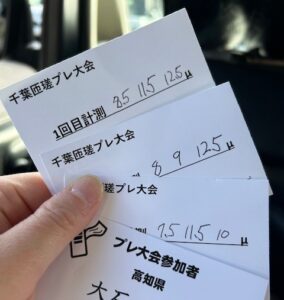 千葉匝瑳プレ大会
1回目計測 8.5 11.5 12.5 μ
千葉匝瑳プレ大会
8 9 12.5 μ
匝瑳プレ大会
測 7.5 11.5 10 μ
プレ大会参加者
高知県
大石